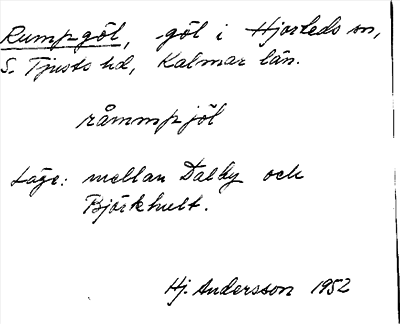 Rumpgöl, göl i Hjorteds sn,
S. Tjusts hd, Kalmar län.
råmmpjöl
Läge: mellan Dalby och
Björkhult.
Hj. Andersson 1952